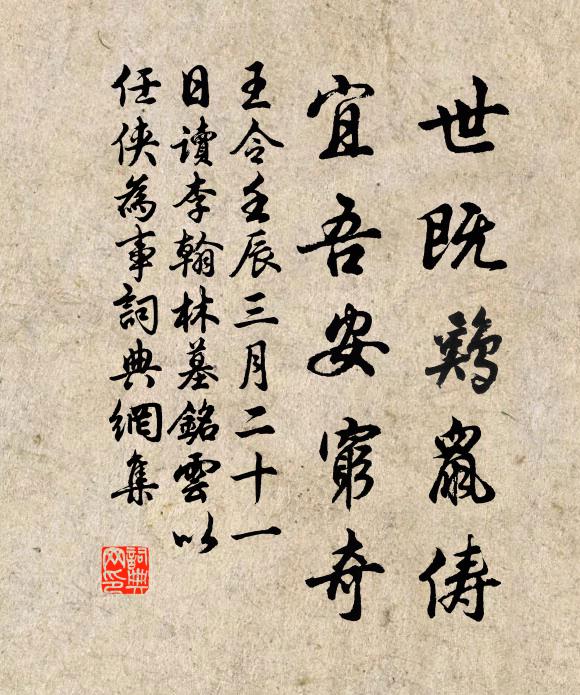 世既鷄鼠俦
宜吾安窮奇
王令壬辰三月二十一
日讀李翰林墓銘雲以
任俠為事詞典網集
詞典
网印